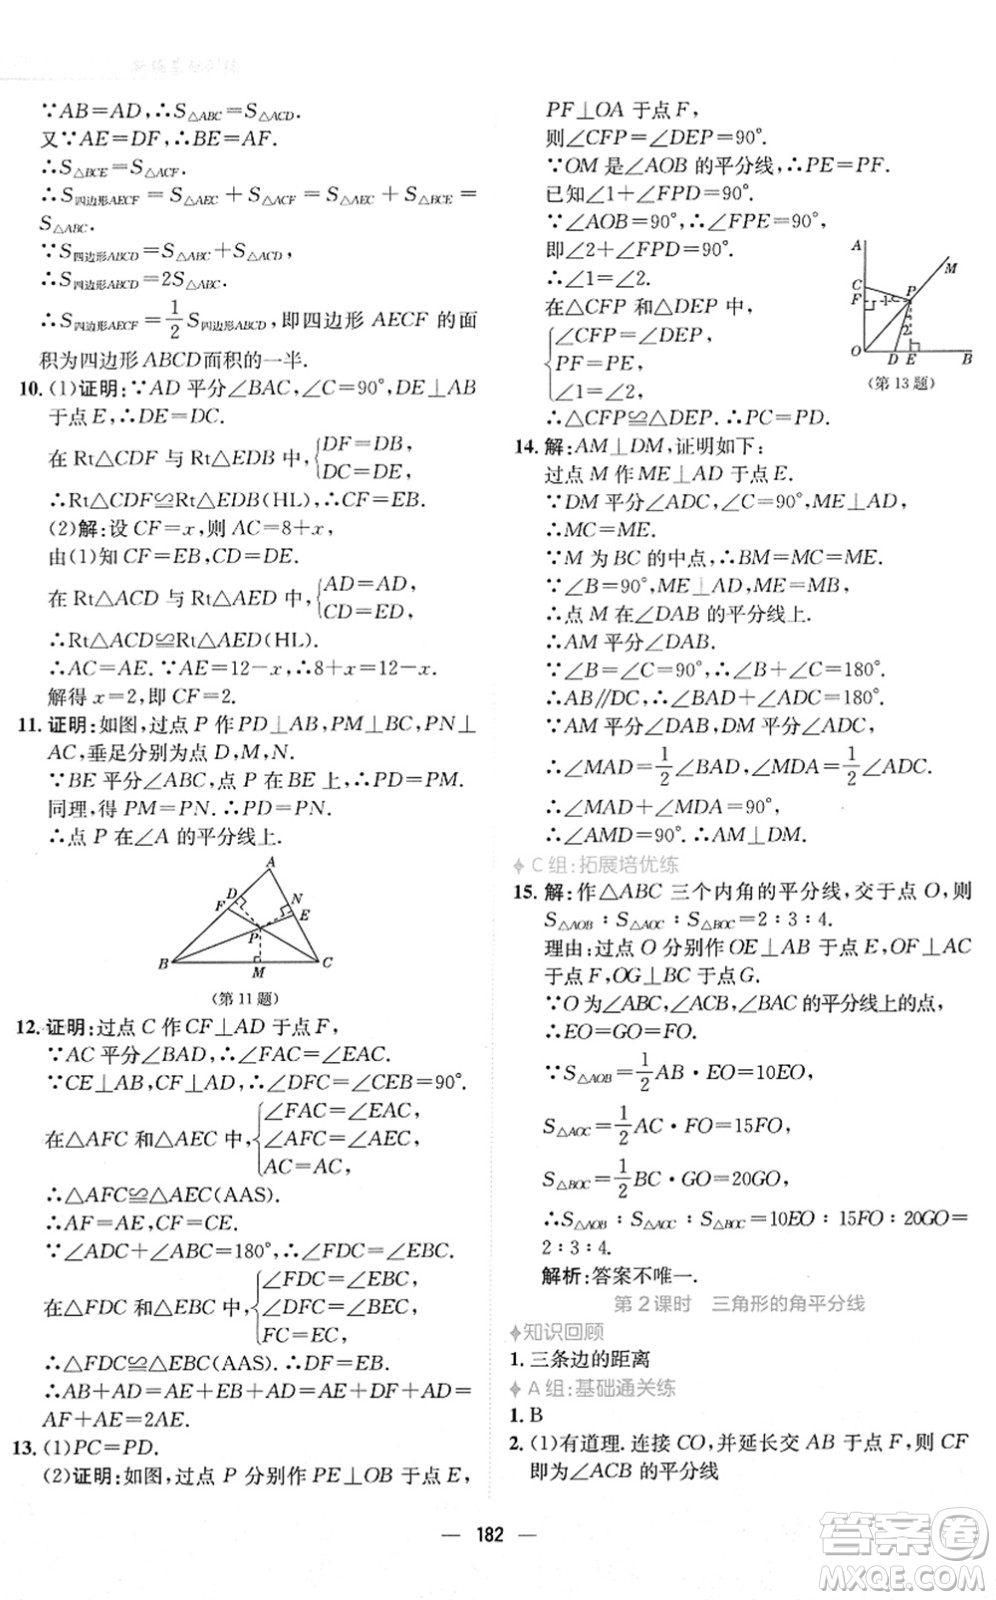 ∵AB=AD,∴S△ABC=S△ACD.
又∵AE=DF,∴BE=AF.
∴S△BCE=S△ACF.
∴S四边形AECF=S△AEC+S△ACF=S△AEC+S△BCE=
S△ABC.
∵S四边形ABCD=S△ABC+S△ACD,
∴S四边形ABCD=2S△ABC.
∴S四边形AECF=1/2 S四边形ABCD,即四边形 AECF 的面
积为四边形 ABCD 面积的一半.
10. (1)证明:∵AD 平分∠BAC,∠C=90°,DE⊥AB
于点 E,∴DE=DC.
在 Rt△CDF 与 Rt△EDB 中,{DF=DB,
DC=DE,
∴Rt△CDF≌Rt△EDB(HL).∴CF=EB.
(2)解:设 CF=x,则 AC=8+x.
由(1)知 CF=EB,CD=DE.
在 Rt△ACD 与 Rt△AED 中,{AD=AD,
CD=ED,
∴Rt△ACD≌Rt△AED(HL).
∴AC=AE.∵AE=12-x,∴8+x=12-x.
解得 x=2,即 CF=2.
11. 证明:如图,过点 P 作 PD⊥AB,PM⊥BC,PN⊥
AC,垂足分别为点 D,M,N.
∵BE 平分∠ABC,点 P 在 BE 上,∴PD=PM.
同理,得 PM=PN.∴PD=PN.
∴点 P 在∠A 的平分线上.
A
D
F
N
E
P
B
M
C
(第 11 题)
12. 证明:过点 C 作 CF⊥AD 于点 F,
∵AC 平分∠BAD,∴∠FAC=∠EAC.
∵CE⊥AB,CF⊥AD,∴∠DFC=∠CEB=90°.
在△AFC 和△AEC 中,{∠FAC=∠EAC,
∠AFC=∠AEC,
AC=AC,
∴△AFC≌△AEC(AAS).
∴AF=AE,CF=CE.
∵∠ADC+∠ABC=180°,∴∠FDC=∠EBC.
在△FDC 和△EBC 中,{∠FDC=∠EBC,
∠DFC=∠CEB,
FC=EC,
∴△FDC≌△EBC(AAS).∴DF=EB.
∴AB+AD=AE+BE+AD=AE+DF+AD=
AF+AE=2AE.
13. (1)PC=PD.
(2)证明:如图,过点 P 分别作 PE⊥OB 于点 E,
PF⊥OA 于点 F,
则∠CFP=∠DEP=90°.
∵OM 是∠AOB 的平分线,∴PE=PF.
已知∠1+∠FPD=90°.
∵∠AOB=90°,∴∠FPE=90°,
即∠2+∠FPD=90°.
∴∠1=∠2.
在△CFP 和△DEP 中,
{∠CFP=∠DEP,
PF=PE,
∠1=∠2,
∴△CFP≌△DEP.∴PC=PD.
A
M
C
P
F
1
2
O
D
E
B
(第 13 题)
14. 解:AM⊥DM,证明如下:
过点 M 作 ME⊥AD 于点 E.
∵DM 平分∠ADC,∠C=90°,ME⊥AD,
∴MC=ME.
∵M 为 BC 的中点,∴BM=MC=ME.
∵∠B=90°,ME⊥AD,ME=MB,
∴点 M 在∠DAB 的平分线上.
∴AM 平分∠DAB.
∵∠B=∠C=90°,∴∠B+∠C=180°.
∴AB//DC.∴∠DAB+∠ADC=180°.
∵AM 平分∠DAB,DM 平分∠ADC,
∴∠MAD=1/2∠DAB,∠MDA=1/2∠ADC.
∴∠MAD+∠MDA=90°,
∴∠AMD=90°.∴AM⊥DM.
C 组:拓展培优练
15. 解:作△ABC 三个内角的平分线,交于点 O,则
S△AOB∶S△AOC∶S△BOC=2∶3∶4.
理由:过点 O 分别作 OE⊥AB 于点 E,OF⊥AC
于点 F,OG⊥BC 于点 G.
∵O 为∠ABC,∠ACB,∠BAC 的平分线上的点,
∴EO=GO=FO.
∵S△AOB=1/2 AB·EO=10EO,
S△AOC=1/2 AC·FO=15FO,
S△BOC=1/2 BC·GO=20GO,
∴S△AOB∶S△AOC∶S△BOC=10EO∶15FO∶20GO=
2∶3∶4.
解析:答案不唯一.
第 2 课时 三角形的角平分线
知识回顾
1. 三条边的距离
A 组:基础通关练
1. B
2. (1)有道理.连接 CO,并延长交 AB 于点 F,则 CF
即为∠ACB 的平分线
— 182 —
答案圈
MXQE.COM